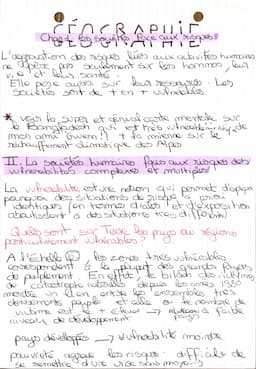 GÉOGRAPHIE
Chap 1. Les sociétés face aux risques
L'aggravation des risques liées aux activités humaines
ne pèse pas seulement sur les hommes, leur
vie et leur santé.
Elle pèse aussi sur leur ressources. Les
sociétés sont de + en + vulnérables
* voir la super et génial carte mentale sur
le Bangladesh qui est très vulnérable
mon cœur Gwenn! + la mienne sur le
réchauffement climatique des Alpes
II. La sociétés humaine face aux risques: des
vulnérabilités complexes et multiples
La vulnérabilité est une notion qui permet d'expliquer
pourquoi des situations de risque a priori
identiques (en terme d'aléas et d'exposition
aboutissent à des situations très différentes)
Quels sont sur Terre les pays ou régions
particulièrement vulnérables?
A l'échelle les zones très vulnérables
correspondent à la plupart des grands foyers
de peuplement. En effet, le bilan des victimes
de catastrophe naturelles depuis les années 1980
montre un lien entre les ensembles très
densément peuplé et elle où le nombre de
victime est le + élevé → à faible
niveau de développement
pays développés → vulnérabilité moindre
pauvreté aggrave les risques: difficulté de
se remettre d'une crise sans moyens